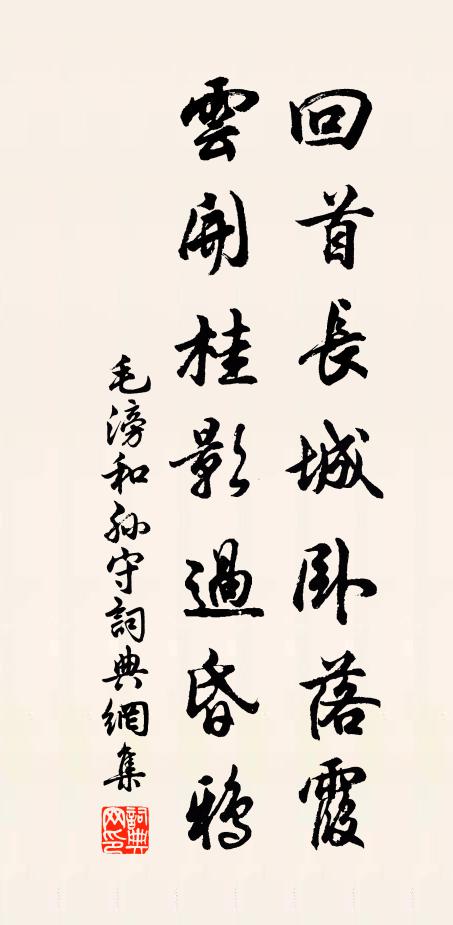 回首長城卧落霞
雲開桂影過昏鴉
毛滂和孙守詞典網集
詞典網印